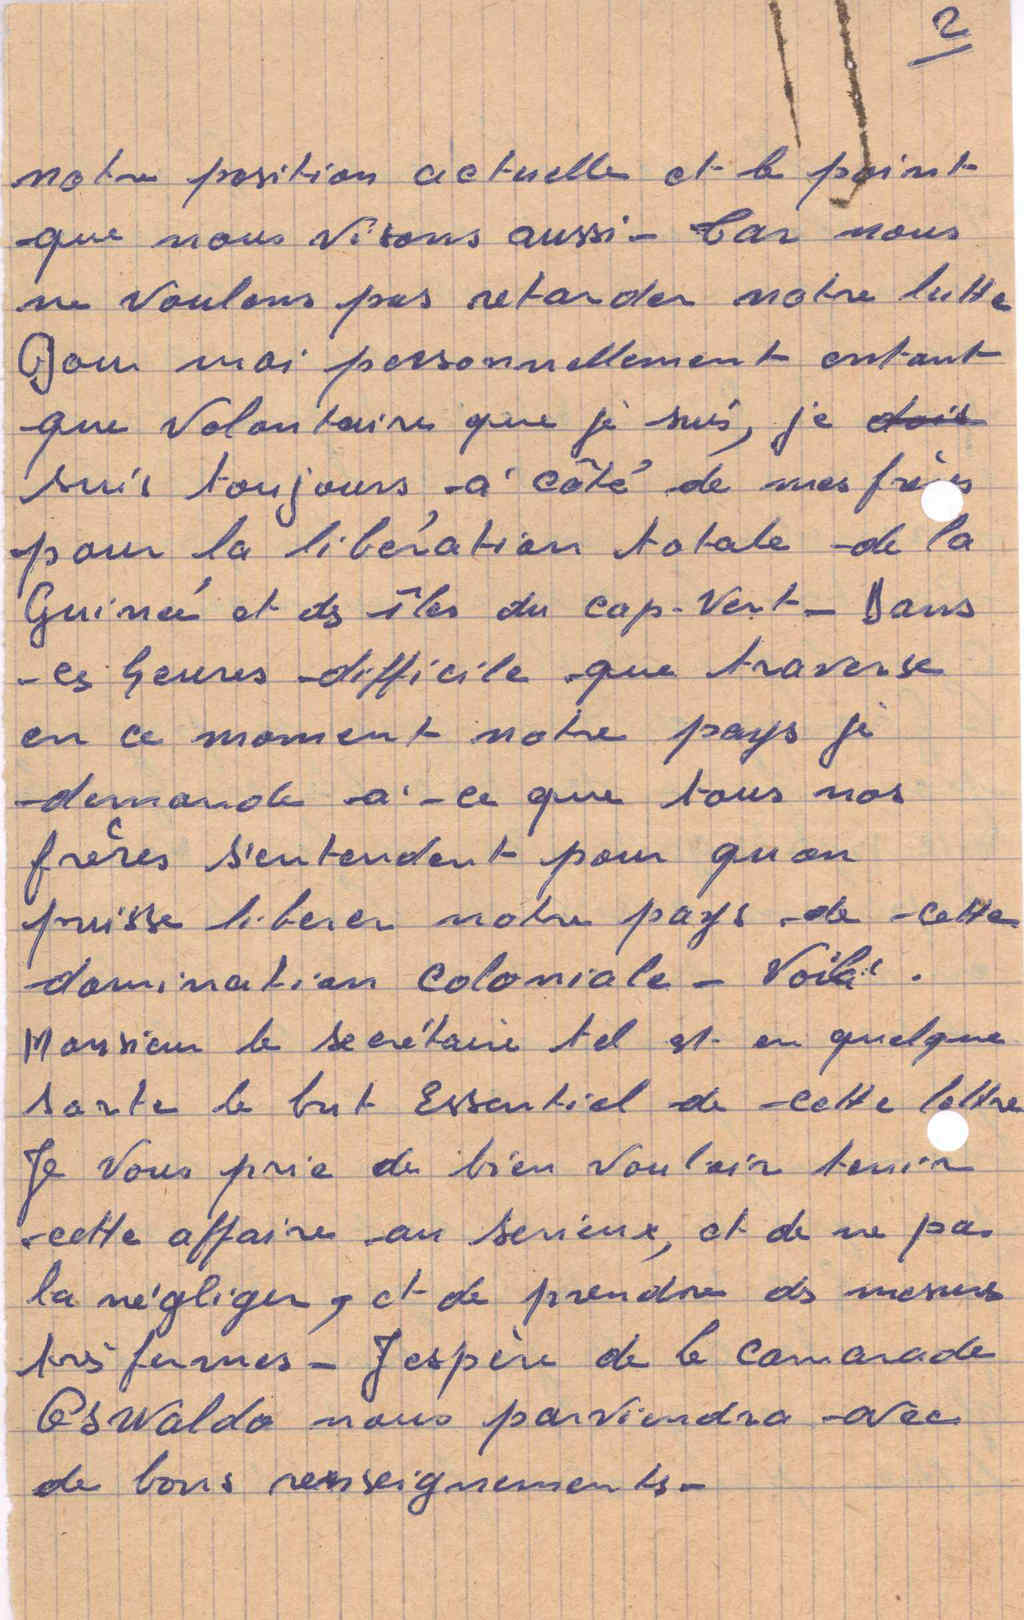 2
notre position actuelle et le point
que nous visons aussi - Car nous
ne voulons pas retarder notre lutte
Pour moi personnellement entant
que volontaire que je suis, je dois
suis toujours à côté de mes frères
pour la libération totale de la
Guinée et ds îles du cap-Vert - Dans
ces heures difficile que traverse
en ce moment notre pays je
demande à ce que tous nos
frères s'entendent pour qu on
puisse liberer notre pays de cette
domination coloniale - Voilà.
Monsieur le secrétaire tel est en quelque
sorte le but Essentiel de cette lettre
Je vous prie de bien vouloir tenir
cette affaire au serieux, et de ne pas
la négliger, et de prendre ds mesures
très fermes - J espère de le camarade
Oswaldo nous parviendra avec
de bons renseignements -